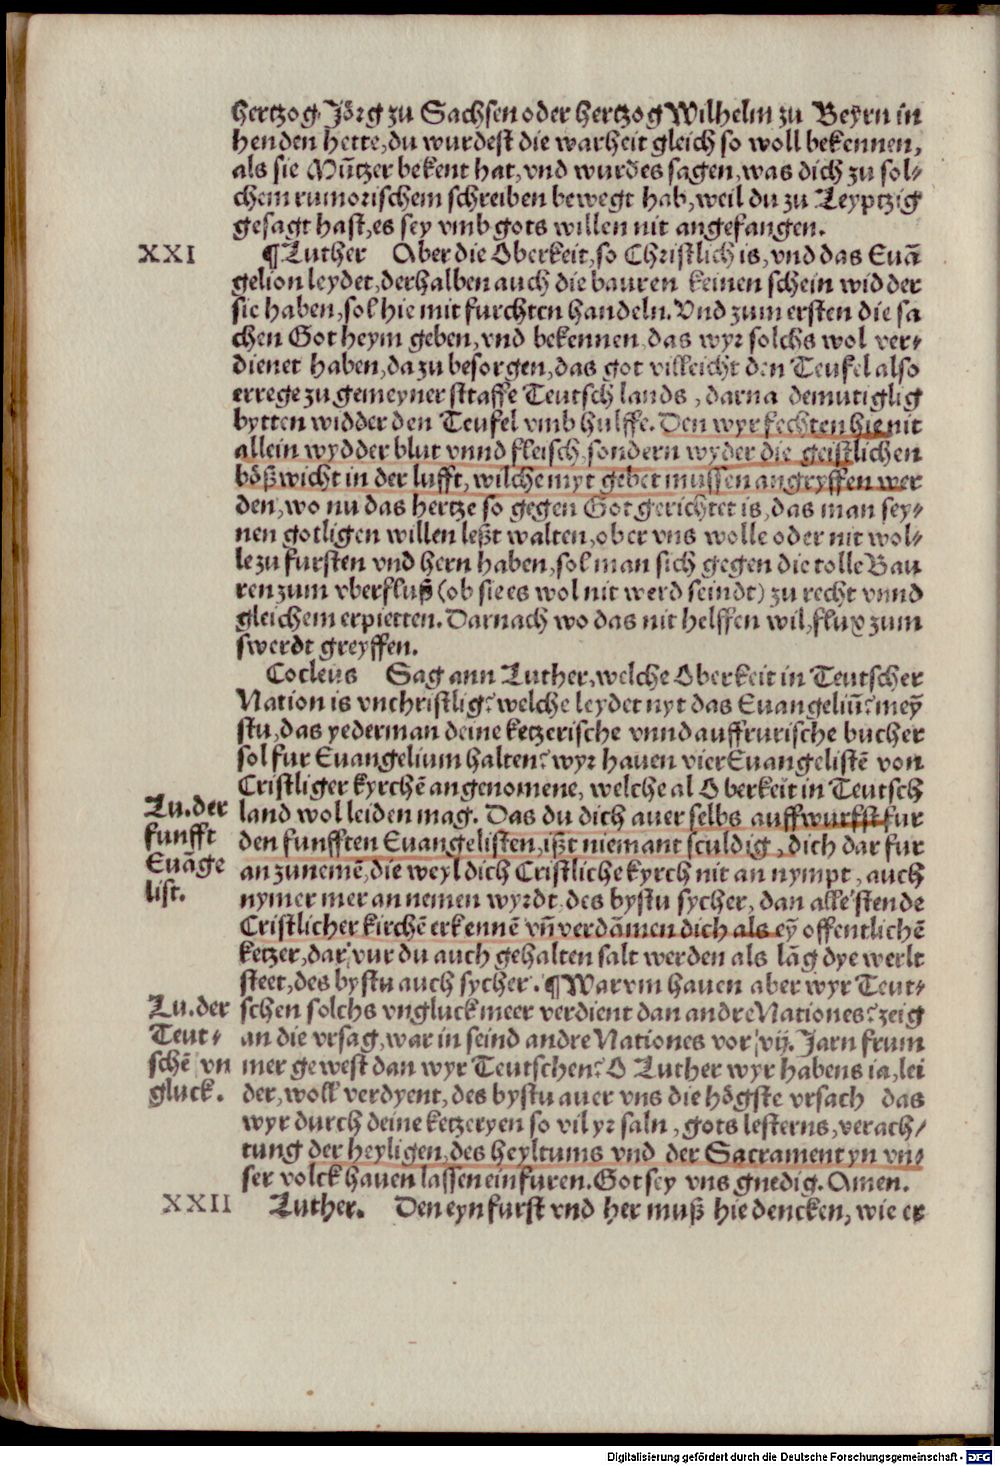 hertzog Jörg zu Sachsen oder hertzog Wilhelm zu Beyrn in
henden hette, du wurdest die warheit gleich so woll bekennen,
als sie Mũtzer bekent hat, vnd wurdes sagen, was dich zu sol-
chem rumorischem schreiben bewegt hab, weil du zu Leyptzig
gesagt hast, es sey vmb gots willen nit angefangen.
XXI ¶Luther Aber die Oberkeit, so Christlich is, vnd das Euã
gelion leydet, derhalben auch die bauren keinen schein widder
sie haben, sol hie mit furchten handeln. Vnd zum ersten die sa
chen Got heym geben, vnd bekennen das wyr solchs wol ver-
dienet haben, dazu besorgen, das got villeicht den Teufel also
errege zu gemeyner sttaffe Teutsch lands, darna demutiglig
bytten widder den Teufel vmb hulffe. Den wyr fechten hie nit
allein wydder blut vnnd fleisch, sondern wyder die geistlichen
bößwicht in der lufft, wilche myt gebet mussen angryffen wer
den, wo nu das hertze so gegen Got gerichtet is, das man sey-
nen gotligen willen leßt walten, ob er vns wolle oder nit wol-
le zu fursten vnd hern haben, sol man sich gegen die tolle Bau
ren zum vberfluß (ob sie es wol nit werd seindt) zu recht vnnd
gleichem erpietten. Darnach wo das nit helffen wil, flux zum
swerdt greyffen.
Cocleus Sag ann Luther, welche Oberkeit in Teutscher
Nation is vnchristlig? welche leydet nyt das Euangeliũ? meyñ
stu, das yederman deine ketzerische vnnd auffrurische bucher
sol fur Euangelium halten? wyr hauen vier Euangelistẽ von
Cristliger kyrchẽ angenomene, welche al Oberkeit in Teutsch
land wol leiden mag. Das du dich auer selbs auffwurfst fur
den funfften Euangelisten, ißt niemant sculdig, dich dar fur
an zunemẽ, die weyl dich Cristliche kyrch nit an nympt, auch
nymer mer an nemen wyrdt, des bystu sycher, dan alle stende
Cristlicher kirchẽ erkennẽ vñ verdãmen dich als eyñ offentlichẽ
ketzer, dar vur du auch gehalten salt werden als lãg dye werlt
steet, des bystu auch sycher. ¶Warvm hauen aber wyr Teut-
schen solchs vngluck meer verdient dan andre Nationes? zeig
an die vrsag, war in seind andre Nationes vor vij. Jarn frum
mer gewest dan wyr Teutschen? O Luther wyr habens ia, lei
der, woll verdyent, des bystu auer vns die högste vrsach das
wyr durch deine ketzeryen so vil yr saln, gots lesterns, verach-
tung der heyligen, des heyltums vnd der Sacrament yn vn-
ser volck hauen lassen einfuren. Got sey vns gnedig. Amen.
XXII Luther. Den eyn furst vnd her muß hie dencken, wie er
Lu. der
funfft
Euãge
list.
Lu. der
Teut-
schẽ vn
gluck.
Digitalisierung gefördert durch die Deutsche Forschungsgemeinschaft - DFG